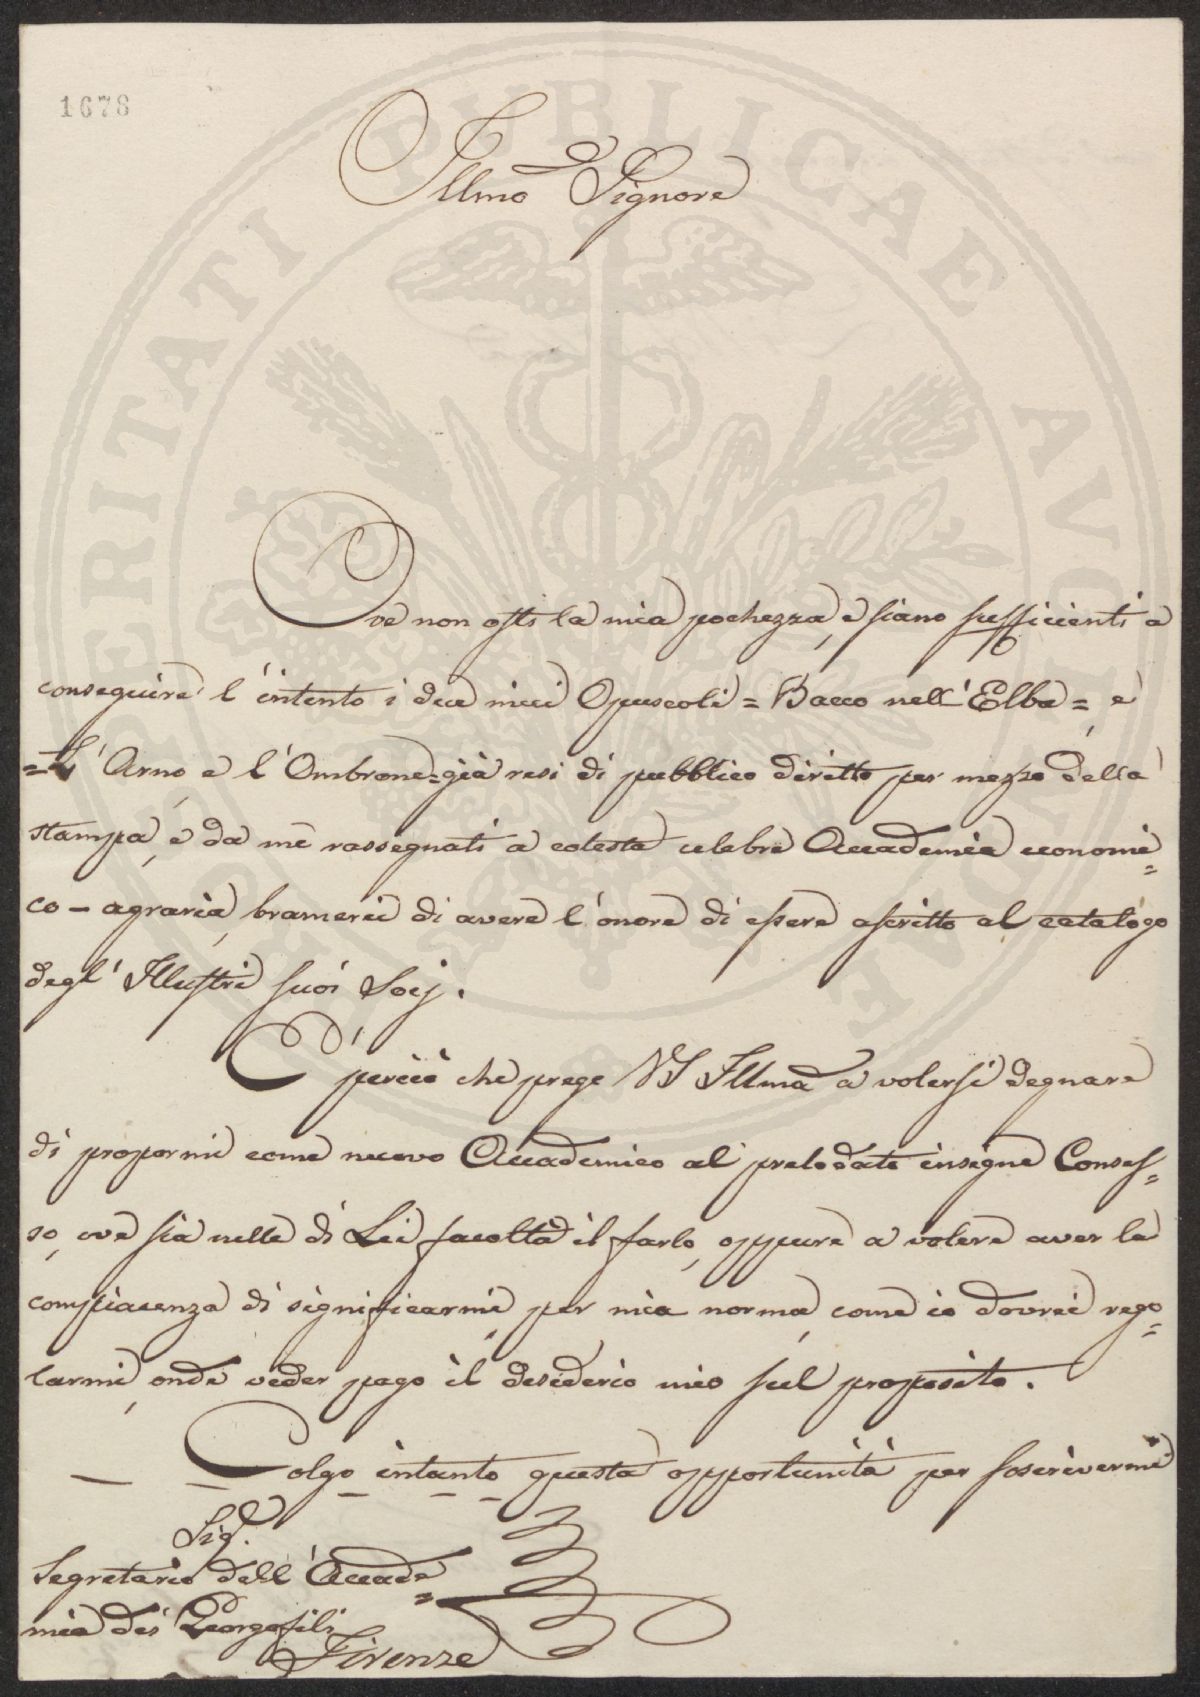 1678
Illmo Signore
Ove non osti la mia pochezza, e siano sufficienti a
conseguire l'intento i due miei Opuscoli = Bacco nell'Elba =, e
= L'Arno e l'Ombrone = già resi di pubblico diritto per mezzo della
stampa, e da me rassegnati a cotesta celebre Accademia economi=
co - agraria, bramerei di avere l'onore di essere ascritto al catalogo
degl'Illustri suoi Socj.
E' perciò che prego VS Illma a volersi degnare
di propormi come nuovo Accademico al prelodato insigne Conses=
so, ove sia nelle di Lei facoltà il farlo, oppure a volere aver la
compiacenza di significarmi, per mia norma, come io dovrei rego=
larmi, onde veder pago il desiderio mio sul proposito.
Colgo intanto questa opportunità per soscrivermi
Sig.
Segretario dell'Accade=
mia dei Georgofili
Firenze
PROSPERITATI PUBLICAE AUGENDAE